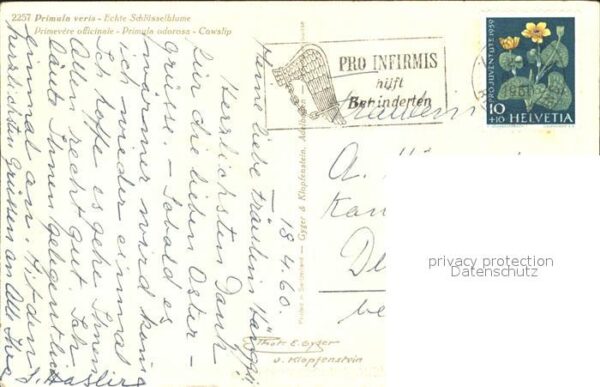 2257 Primula veris - Echte Schlüsselblume
Primevère officinale - Primula odorosa - Cowslip
18.4.60.
Meine liebe Fräulein
Herzlichsten Dank
für die lieben Oster-
grüsse. - Sobald es
wärmer wird komme
ich wieder einmal
Ich hoffe es gehe Ihnen
Allen recht gut. Ich
läute Ihnen gelegentlich
einmal an. Mit den
herzlichsten Grüssen an Alle Ihre
S. Haslierz
Gyger & Klopfenstein, Adelboden
Printed in Switzerland
Phot. E. Gyger
u. Klopfenstein
PRO INFIRMIS
hilft
Behinderten
PRO JUVENTUTE 1959
10
+10
HELVETIA
Fräulein
A.
privacy protection
Datenschutz